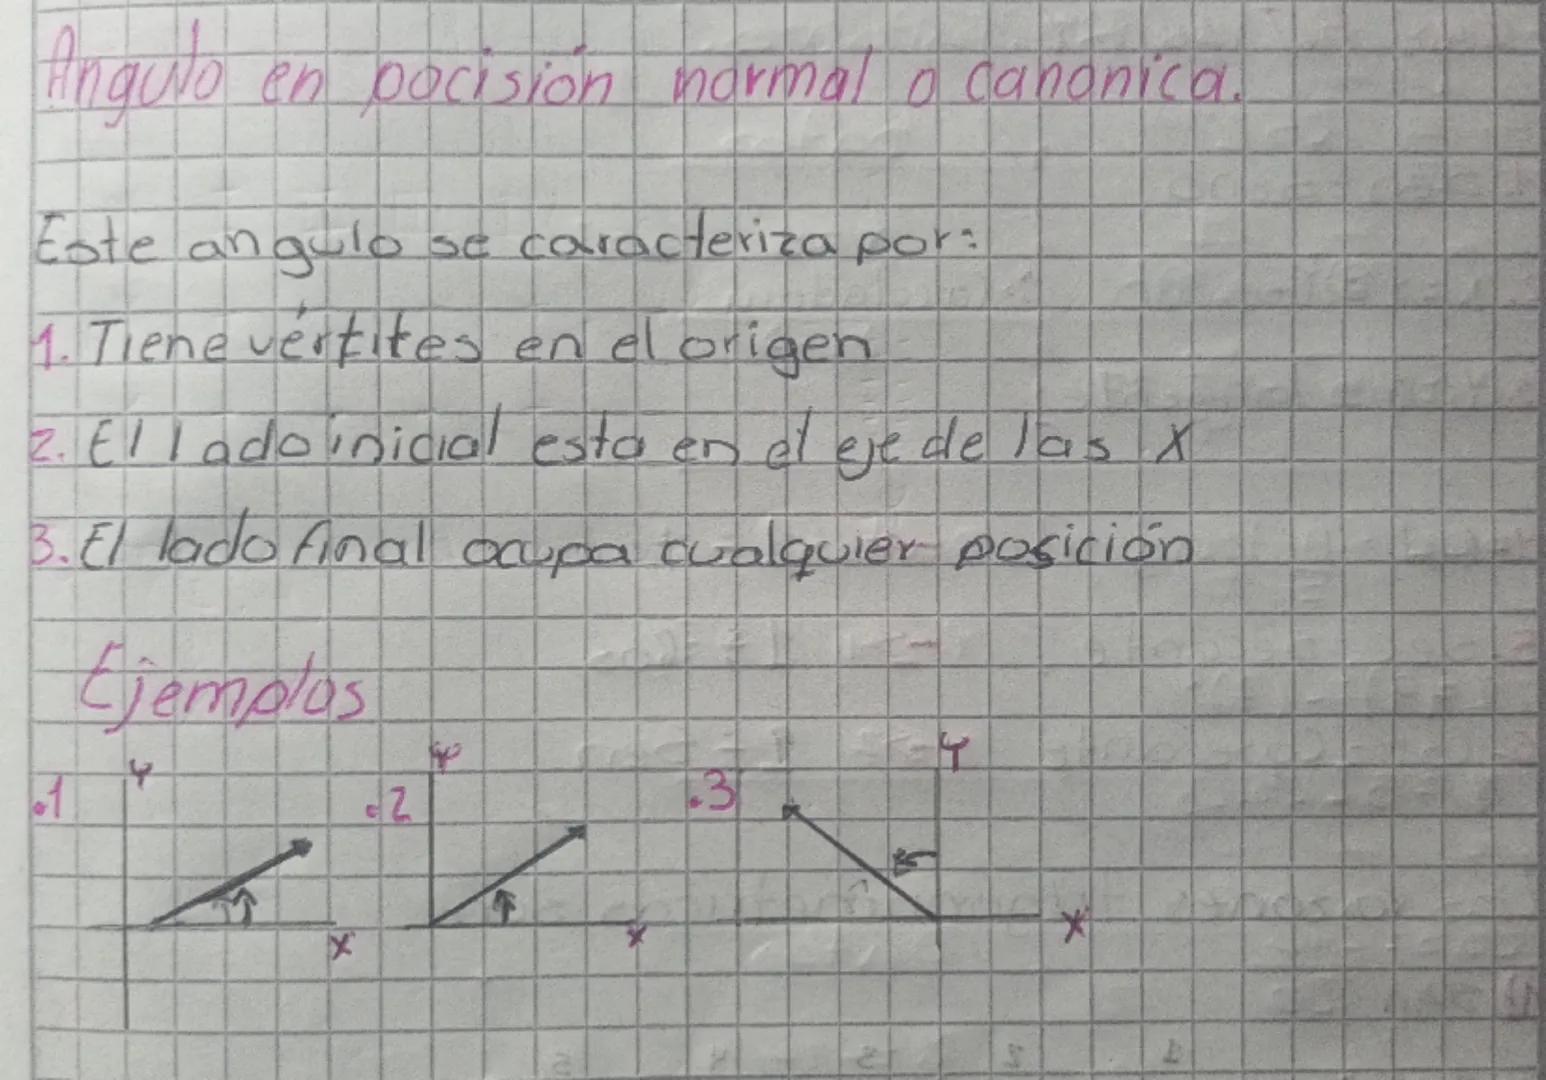 Angulo en pocisión normal o canonica.
Este angulo se caracteriza por:
1. Tiene vértites en el origen
2. El lado inicial esta en el eje de las X
3. El lado final ocupa cualquier posición
Ejemplos
.1 Y X
.2 Y X
.3 Y X